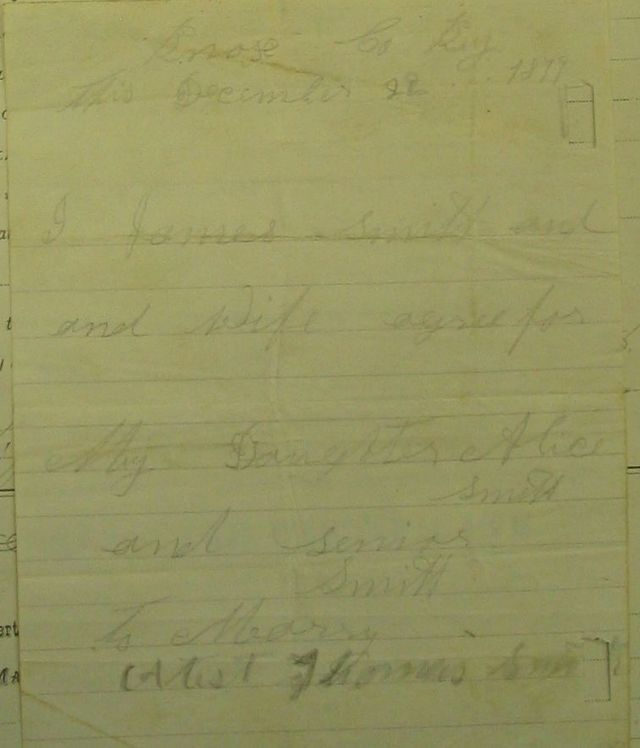 Knox Co Ky
this December 22 1899
I James Smith and
and Wife agree for
My Daughter Alice
Smith
and senior
Smith
To Marry
Attest Thomas Smith